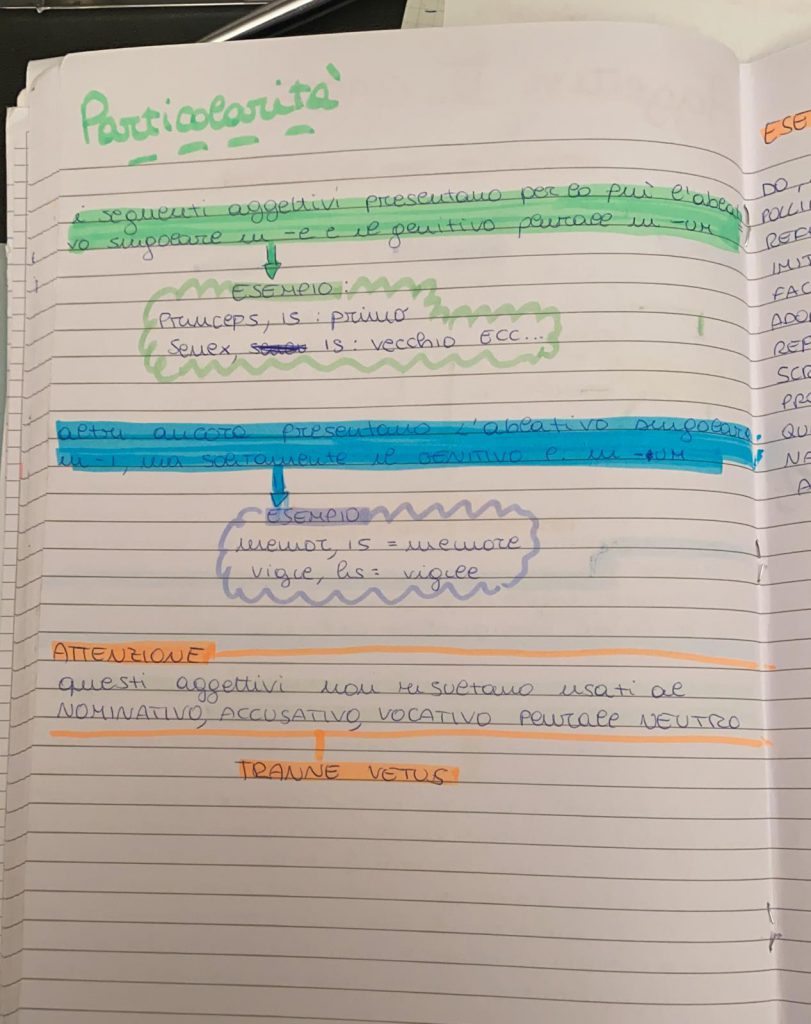 Particolarità
i seguenti aggettivi presentano per lo più l'ablati
vo singolare in -e e il genitivo plurale in -UM
ESEMPIO:
Princeps, is: primo
Senex, is: vecchio ECC...
altri ancora presentano l'ablativo singolare
in -i, ma solitamente il GENITIVO è in -UM
ESEMPIO
memor, is = memore
vigil, lis = vigile
ATTENZIONE
questi aggettivi non risultano usati al
NOMINATIVO, ACCUSATIVO, VOCATIVO plurale NEUTRO
TRANNE VETUS
ESE
DO
POLLI
REF
IMIT
FAC
ADO
REF
SCR
PRO
QU
NA
A